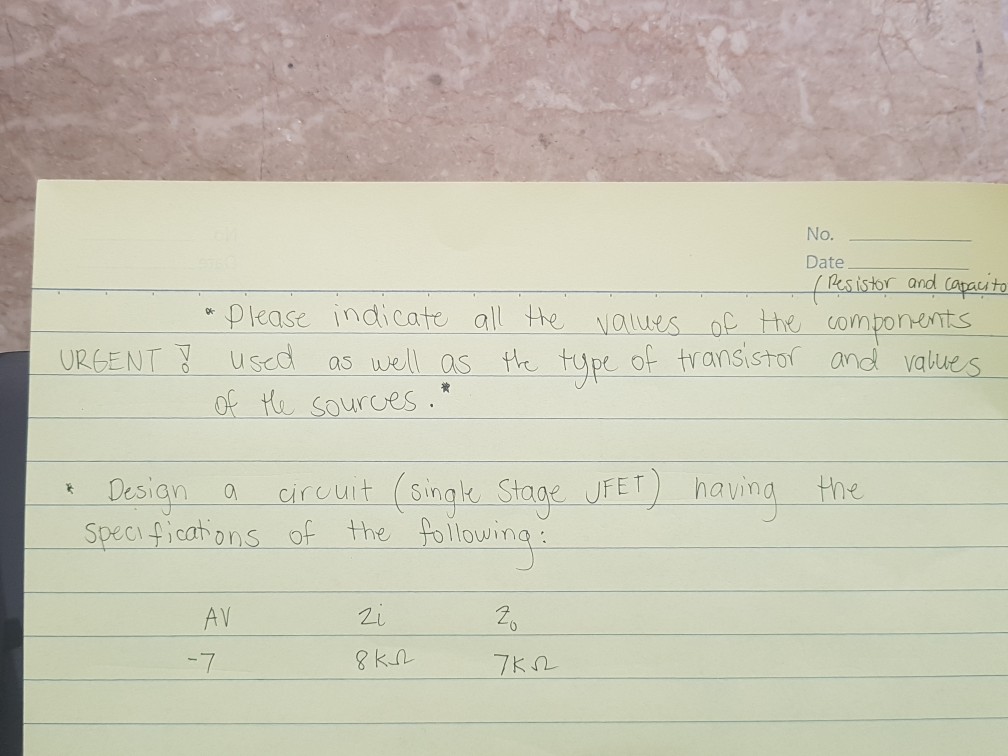 No.
Date
(Resistor and capacito
* Please indicate all the values of the components
URGENT! used as well as the type of transistor and values
of the sources.*
* Design a circuit (single stage JFET) having the
specifications of the following:
AV Zi Zo
-7 8KΩ 7KΩ